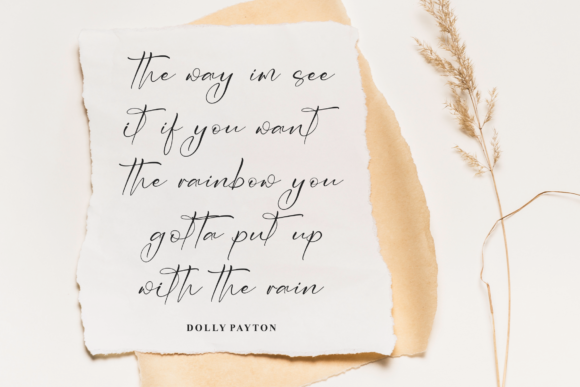 the way im see
it if you want
the rainbow you
gotta put up
with the rain
DOLLY PAYTON